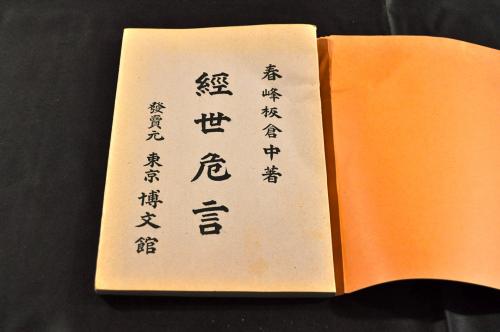 春峰板倉中著
經世危言
發賣元 東京 博文館